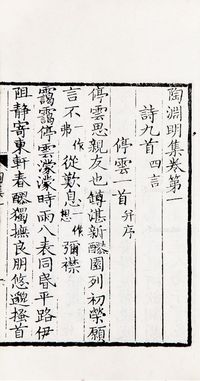 陶淵明集卷第一
詩九首四言
停雲一首并序
停雲思親友也罇湛新醪園列初榮願
言不一作弗從歎息一作想彌襟
靄靄停雲濛濛時雨八表同昏平路伊
阻靜寄東軒春醪獨撫良朋悠邈搔首